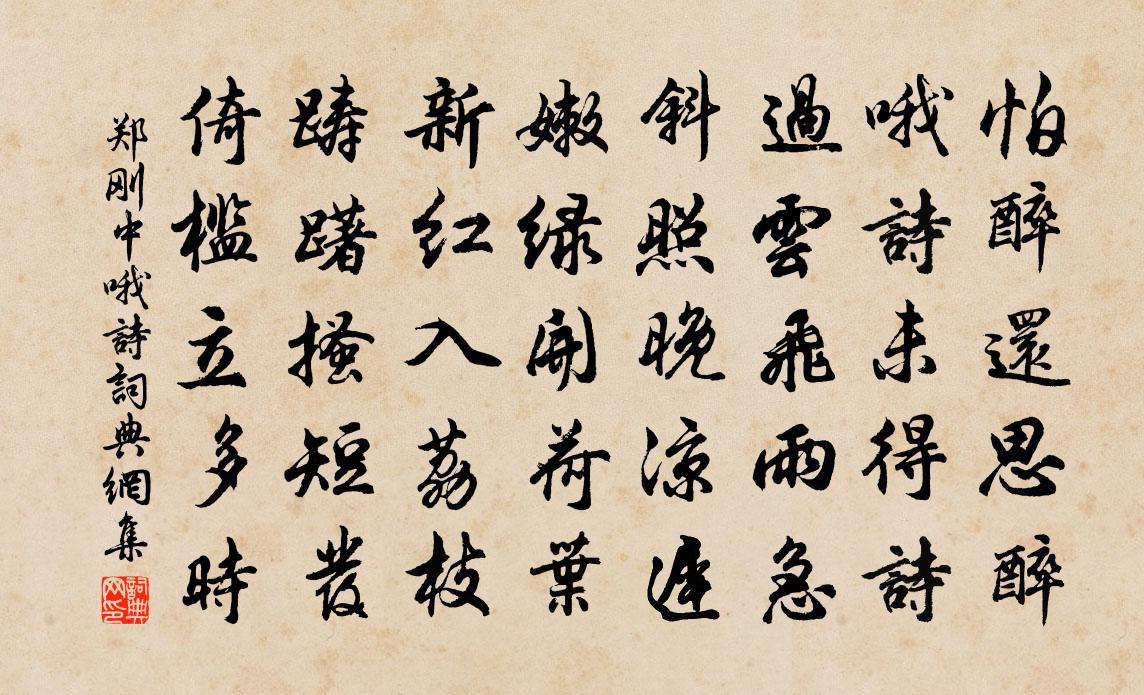 怕醉還思醉
哦詩未得詩
過雲飛雨急
斜照晚涼遲
嫩绿開荷葉
新红入荔枝
踌躇搔短發
倚檻立多時
郑刚中哦詩詞典網集
詞典网印